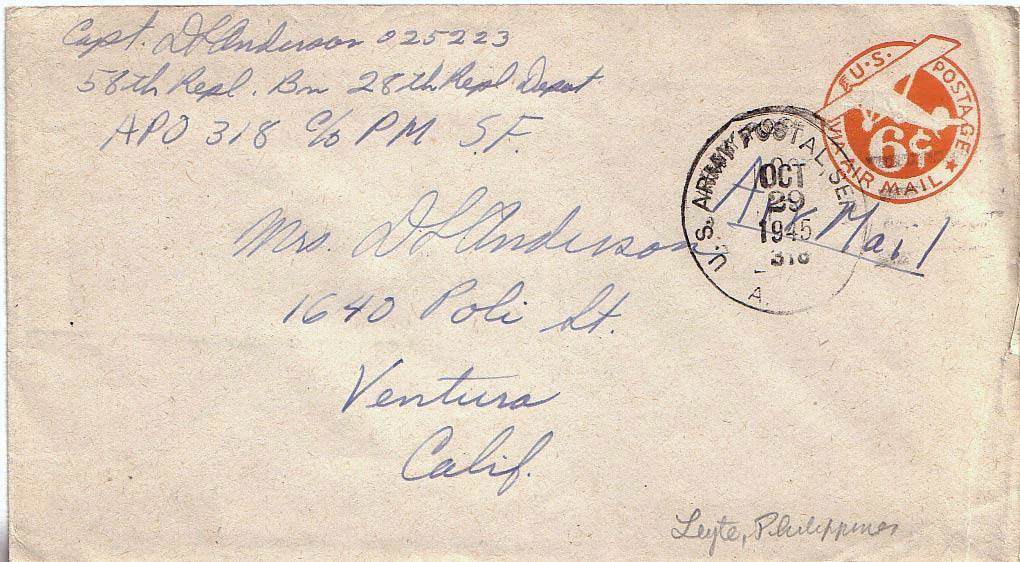 Capt. D L Anderson 025223
58th Repl. Bn 28th Repl Depot
APO 318 c/o PM S.F.
U.S. POSTAGE
6¢
VIA AIR MAIL
U. S. ARMY POSTAL SER
OCT
29
1945
318
A.
Air Mail
Mrs. D L Anderson
1640 Poli St.
Ventura
Calif.
Leyte, Philippines